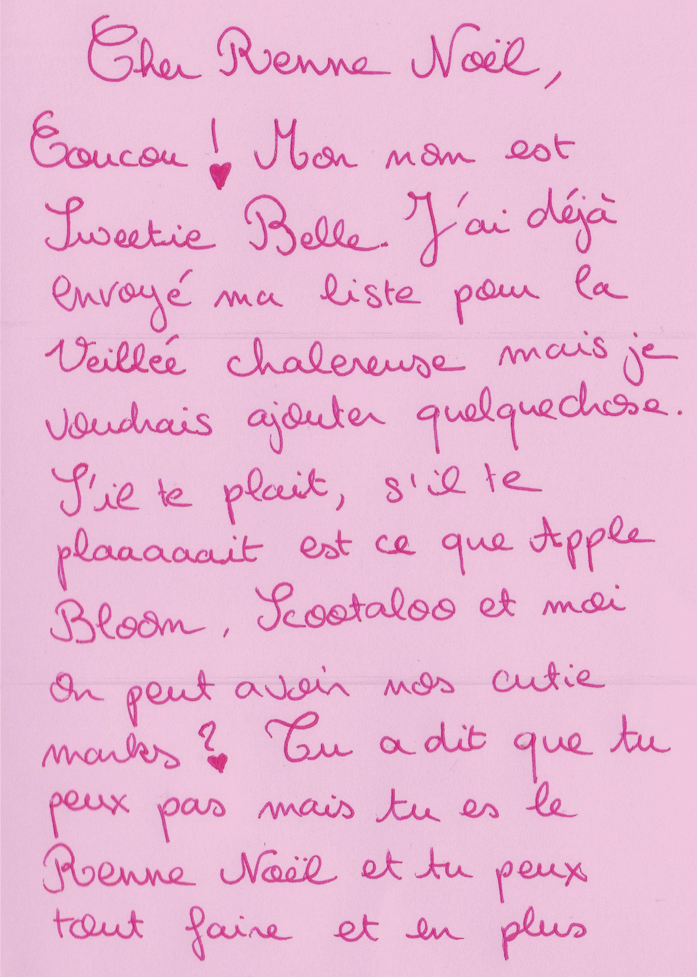 Cher Renne Noël,
Coucou ! Mon nom est
Sweetie Belle. J'ai déjà
envoyé ma liste pour la
Veilleé chalereuse mais je
voudrais ajouter quelquechose.
S'il te plait, s'il te
plaaaaait est ce que Apple
Bloom, Scootaloo et moi
on peut avoir nos cutie
marks ? Tu a dit que tu
peux pas mais tu es le
Renne Noël et tu peux
tout faire et en plus